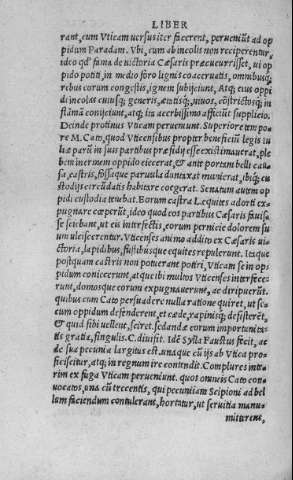 LIBER
rant, cum Vticam versus iter facerent, perueniũt ad op
pidum Paradam. Vbi, cum ab incolis non reciperentur,
ideo qđ fama de victoria Cæsaris præcucurrisset, vi op
pido potiti, in medio foro lignis coaceruatis, omnibusq́;
rebus eorum congestis, ignem subijciunt. Atq; eius oppi
di incolas cuiusq; generis, ætatisq́;, viuos, cõstrictosq́; in
flãmã conijciunt, atq; ita acerbissimo afficiũt supplicio.
Deinde protinus Vticam perueniunt. Superiore tem po
re M. Cato, quod Vticensibus propter beneficiũ legis Iu
liæ parũ in suis partibus præsidij esse existimauerat, ple
bem inermem oppido eiecerat, & ante portem belli castra
sa, castris, fossaque paruula duntaxat munierat, ibiq; cu
stodijs circũdatis habitare coegerat. Senatum autem op
pidi custodia tenebat. Eorum castra L. equites adorti ex
pugnare cœperũt, ideo quod eos partibus Cæsaris fauisse
sciebant, vt eis interfectis, eorum pernicie dolorem su
um vlciscerentur. Vticenses animo addito ex Cæsaris vi
ctoria, lapidibus, fustibusque equites repulerunt. Itaque
postquam castris non potuerant potiri, Vticam se in op
pidum coniecerunt, atque ibi multos Vticenses interfece
runt, domosque eorum expugnauerunt, ac diripuerũt.
quibus cum Cato persuadere nulla ratione quiret, vt se
cum oppidum defenderent, et cæde, rapinisq́; desisterẽt,
& quid sibi vellent, sciret. sedandæ eorum importunita
tis gratia, singulis. C. diuisit. Idẽ Sylla Faustus fecit, ac
de sua pecunia largitus est. vnaque cũ ijs ab Vtica pro
ficiscitur, atq; in regnum ire contendit. Complures inte
rim ex fuga Vticam perueniunt. quos omneis Cato con
uocatos, vna cũ trecentis, qui pecuniam Scipioni ad bel
lum faciendum contulerant, hortatur, vt seruitia manu
mitterent,